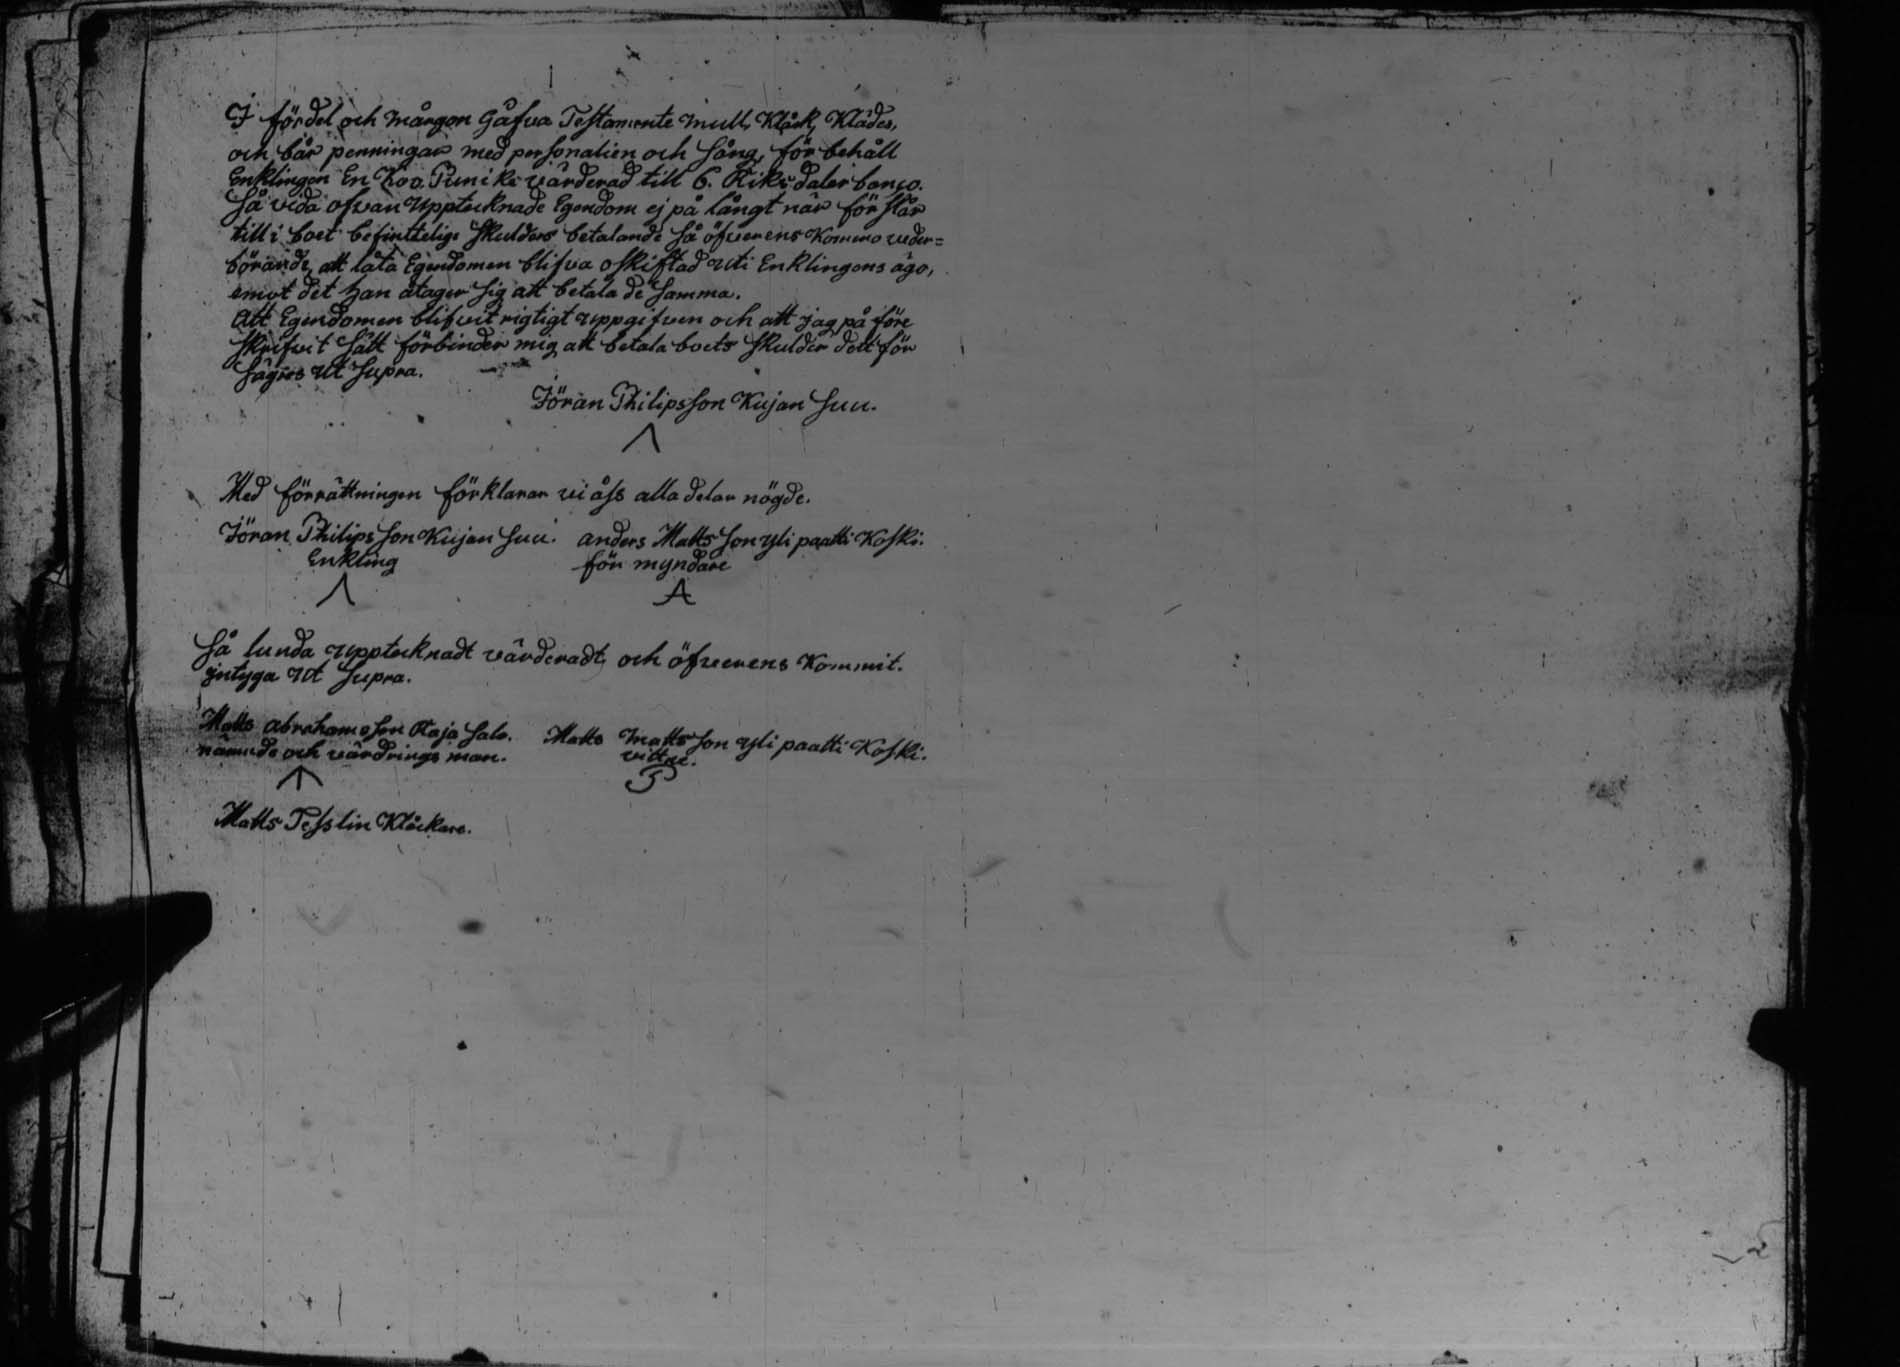 I fördel och mårgon Gåfva Testamente mull, Klåck, Kläder,
och bår penningar med personalien och Sång, för behåll
Enklingen En Koo Puniki värderad till 6. Riksdaler banco.
Så vida ofvan Upptecknade Egendom ej på långt når förslår
till i boet befinttelige Skulders betalande Så öfverens Kommo veder=
börande, att låta Egendomen blifva oskiftad uti Enklingens ägo,
emot det han åtager Sig att betala de Samma.
Att Egendomen blifvit rigtigt uppgifven och att jag på före
Skrifvit Sätt förbinder mig att betala boets Skulder dett för
Säges Ut Supra.
Jöran Philipsson Kujan Suu.
Med förrättningen förklarar vi åss alla delar nögde.
Jöran Philipsson Kujan Suu. anders Mattsson yli paatti Koski.
Enkling för myndare
A
Så lunda Upptecknadt värderadt, och öfverens Kommit.
jntyga Ut Supra.
Matts abrahamsson Raja Salo. Matts Mattsson yli paatti Koski.
nämnde och värdrings man. vittne.
P
Matts Tesslin Klåckare.